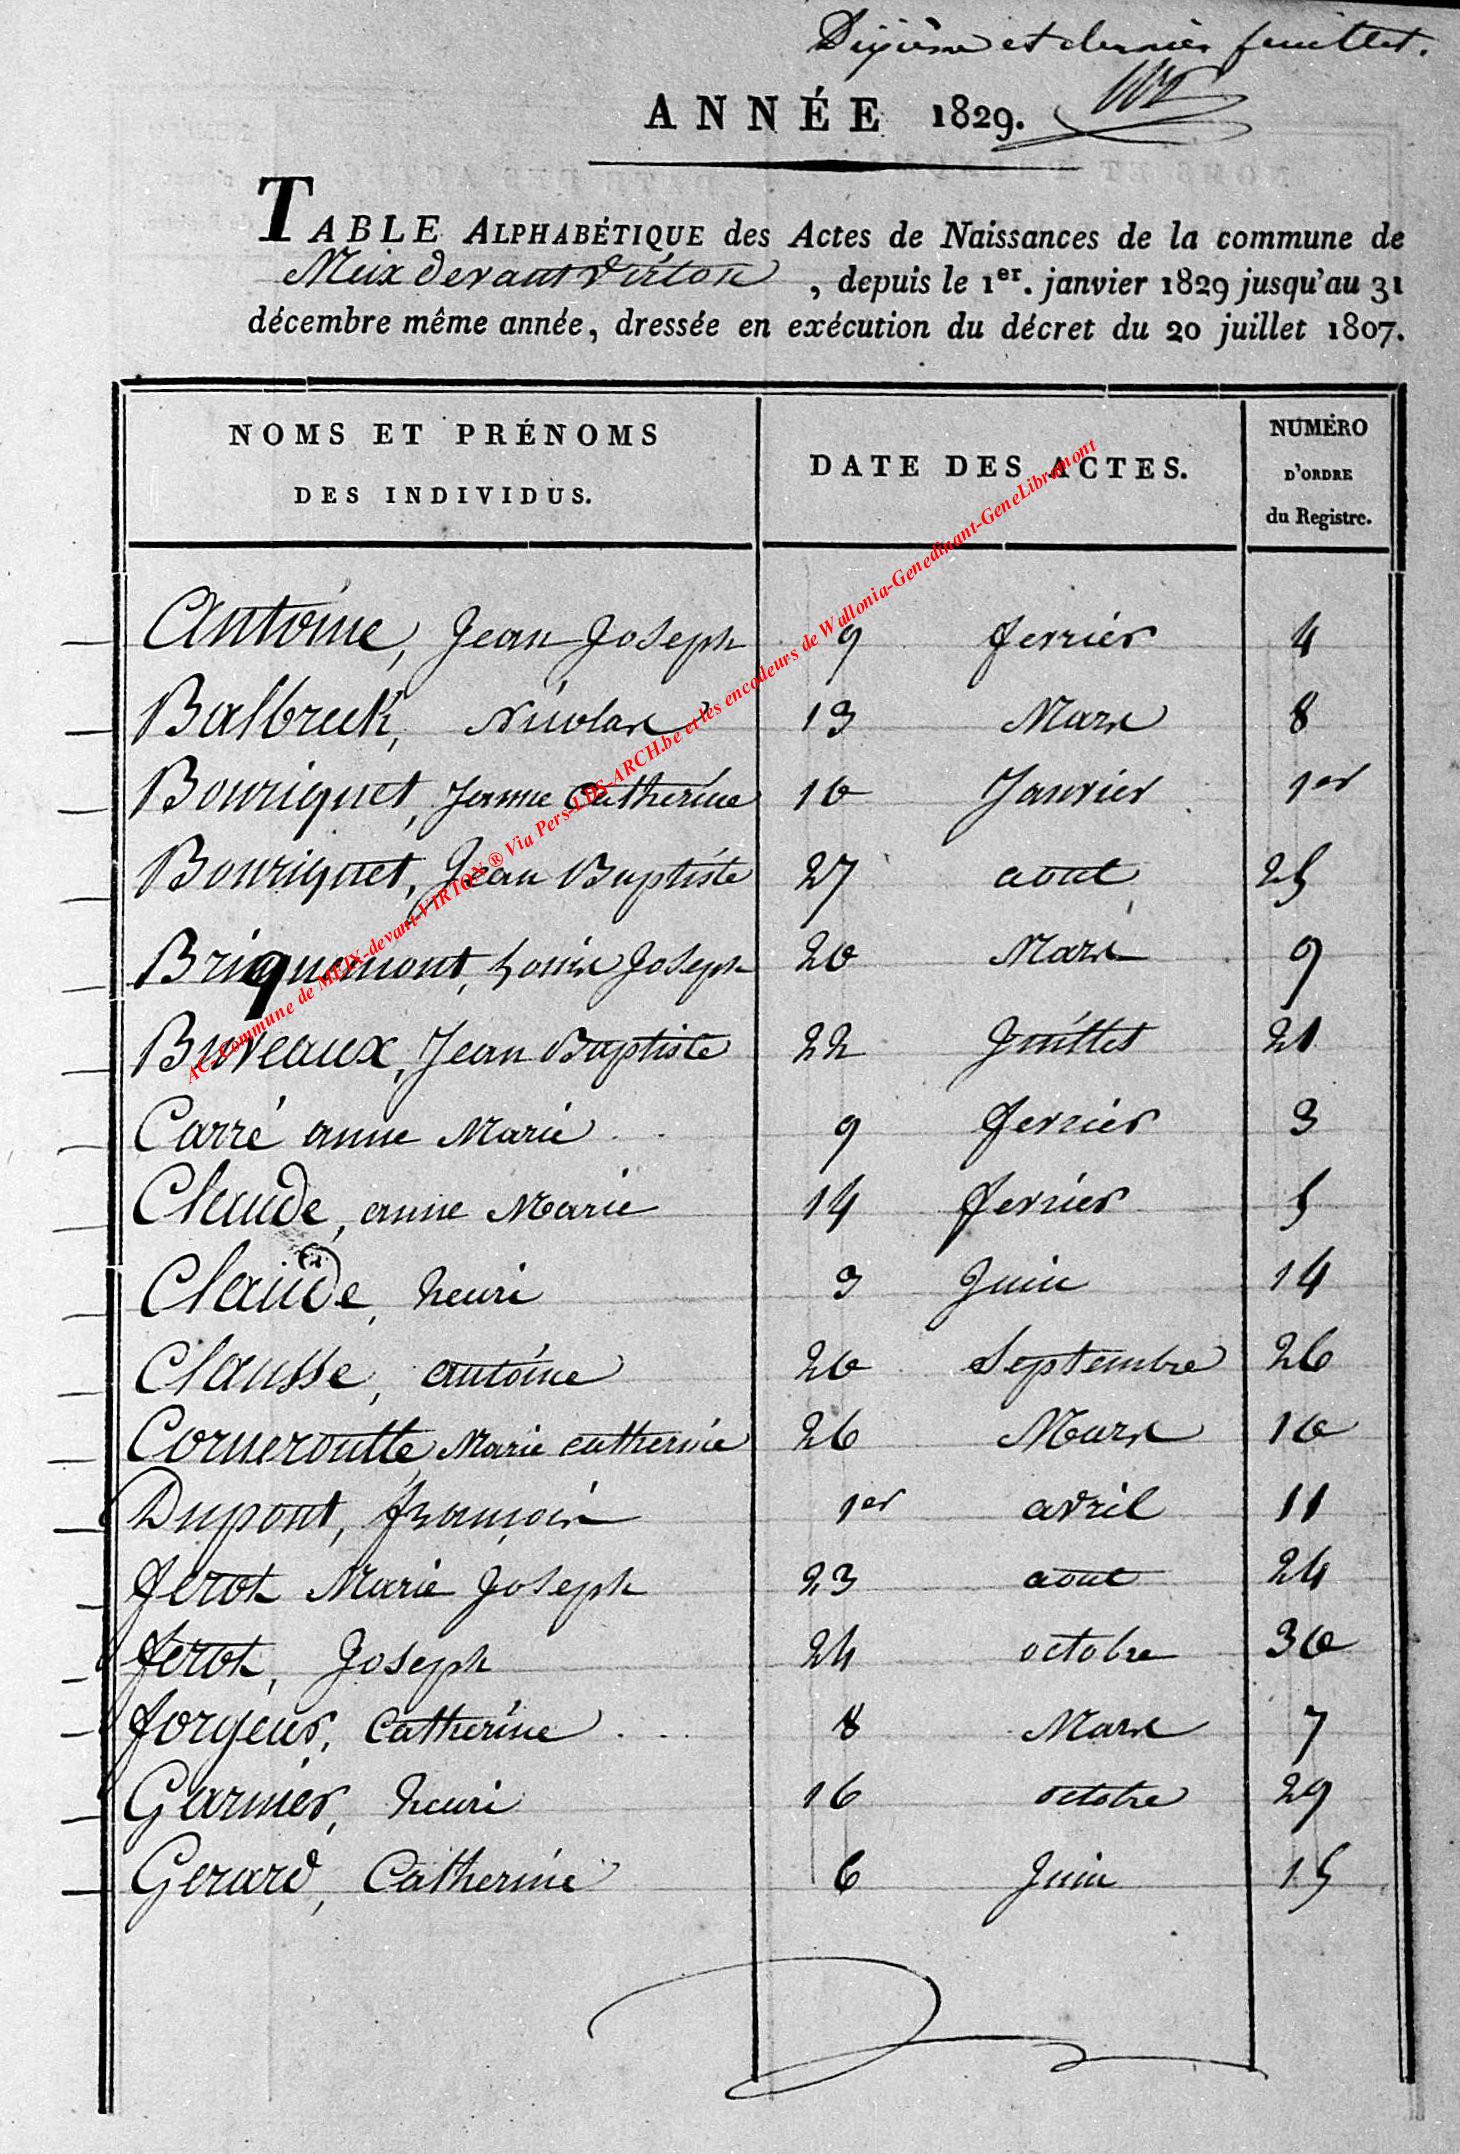 Dixième et dernier feuillet.
ANNÉE 1829.
TABLE ALPHABÉTIQUE des Actes de Naissances de la commune de
Meix devant Virton, depuis le 1er. janvier 1829 jusqu'au 31
décembre même année, dressée en exécution du décret du 20 juillet 1807.
NOMS ET PRÉNOMS
DES INDIVIDUS.
DATE DES ACTES.
NUMÉRO
D'ORDRE
du Registre.
Antoine, Jean Joseph 9 fevrier 4
Balbreck, Nicolas 13 Mars 8
Bouriquet, Jeanne Catherine 10 Janvier 1er
Bouriquet, Jean Baptiste 27 aout 25
Briquemont, Louis Joseph 20 Mars 9
Buveaux, Jean Baptiste 22 Juillet 21
Carré anne Marie 9 fevrier 3
Claude, anne Marie 14 fevrier 5
Claude, henri 3 Juin 14
Clausse, antoine 20 Septembre 26
Corneroutte Marie catherine 26 Mars 10
Dupont, françois 1er avril 11
ferot Marie Joseph 23 aout 24
ferot, Joseph 24 octobre 30
forgeur, Catherine 8 Mars 7
Garnier, henri 16 octobre 29
Gerard, Catherine 6 Juin 15
AC-Commune de MEIX-devant-VIRTON ® Via Pers-LDS-ARCH.be et les encodeurs de Wallonia-Genedinant-GeneLibramont